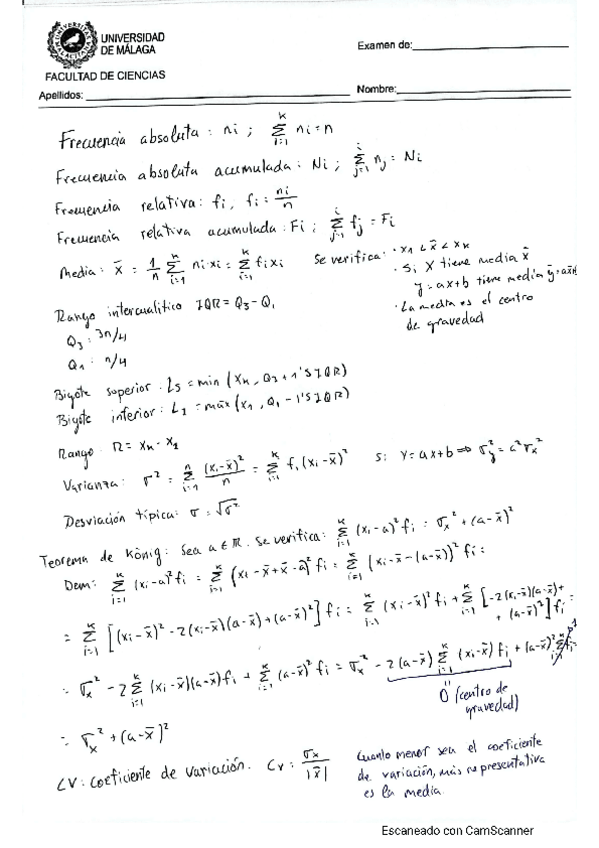 UNIVERSIDAD
DE MÁLAGA
FACULTAD DE CIENCIAS
Examen de:
Apellidos:
Nombre:
Frecuencia absoluta: ni ; Σ_{i=1}^{k} ni = n
Frecuencia absoluta acumulada: Ni ; Σ_{j=1}^{i} nj = Ni
Frecuencia relativa: fi, fi = ni/n
Frecuencia relativa acumulada: Fi ; Σ_{j=1}^{i} fj = Fi
Media: x̄ = 1/n Σ_{i=1}^{k} ni·xi = Σ_{i=1}^{k} fi xi Se verifica: · x1 < x̄ < xk
· Si X tiene media x̄
y = ax+b tiene media ȳ = ax̄+b
· La media es el centro
de gravedad
Rango intercuatílico IQR = Q3 - Q1
Q3: 3n/4
Q1: n/4
Bigote superior: Ls = min (xn, Q3 + 1'5 IQR)
Bigote inferior: LI = max (x1, Q1 - 1'5 IQR)
Rango: R = xn - x1
Varianza: σ² = Σ_{i=1}^{n} (xi-x̄)²/n = Σ_{i=1}^{k} fi (xi-x̄)² Si Y = ax+b ⇒ σy² = a²σx²
Desviación típica: σ = √σ²
Teorema de König: Sea a ∈ ℝ. Se verifica: Σ_{i=1}^{k} (xi-a)² fi = σx² + (a-x̄)²
Dem: Σ_{i=1}^{k} (xi-a)² fi = Σ_{i=1}^{k} (xi-x̄+x̄-a)² fi = Σ_{i=1}^{k} (xi-x̄-(a-x̄))² fi =
= Σ_{i=1}^{k} [(xi-x̄)² - 2(xi-x̄)(a-x̄) + (a-x̄)²] fi = Σ_{i=1}^{k} (xi-x̄)² fi + Σ_{i=1}^{k} [-2(xi-x̄)(a-x̄) + (a-x̄)²] fi =
= σx² - 2 Σ_{i=1}^{k} (xi-x̄)(a-x̄) fi + Σ_{i=1}^{k} (a-x̄)² fi = σx² - 2(a-x̄) Σ_{i=1}^{k} (xi-x̄) fi + (a-x̄)² Σ_{i=1}^{k} fi =
0 (centro de
gravedad)
= σx² + (a-x̄)²
CV: coeficiente de variación. Cv = σx/|x̄|
Cuanto menor sea el coeficiente
de variación, más representativa
es la media.
Escaneado con CamScanner